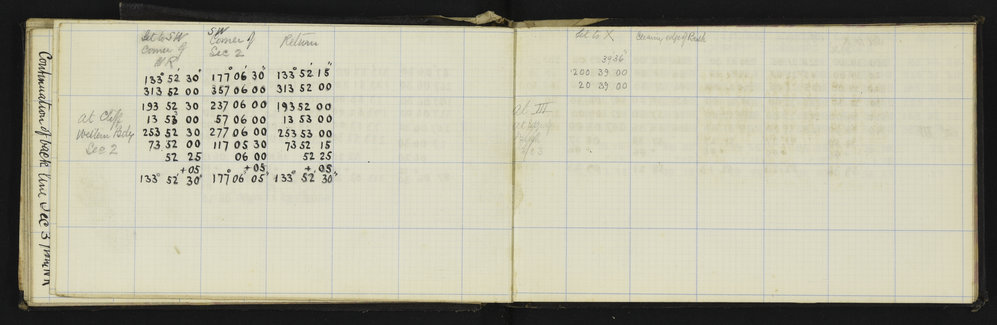 Set to SW
Corner of
NR
SW
Corner of
Sec 2
Return
133° 52' 30" 177° 06' 30" 133° 52' 15"
313 52 00 357 06 00 313 52 00
193 52 30 237 06 00 193 52 00
13 53 00 57 06 00 13 53 00
253 52 30 277 06 00 253 53 00
73 52 00 117 05 30 73 52 15
52 25 06 00 52 25
+ 05 + 05 + 05
133° 52' 30" 177° 06' 05" 133° 52' 30"
At Cliff
Western Bdy
Sec 2
Continuation of back line Sec 3
Set to X,
edge of Bush
39 36"
200 39 00
20 39 00
At III